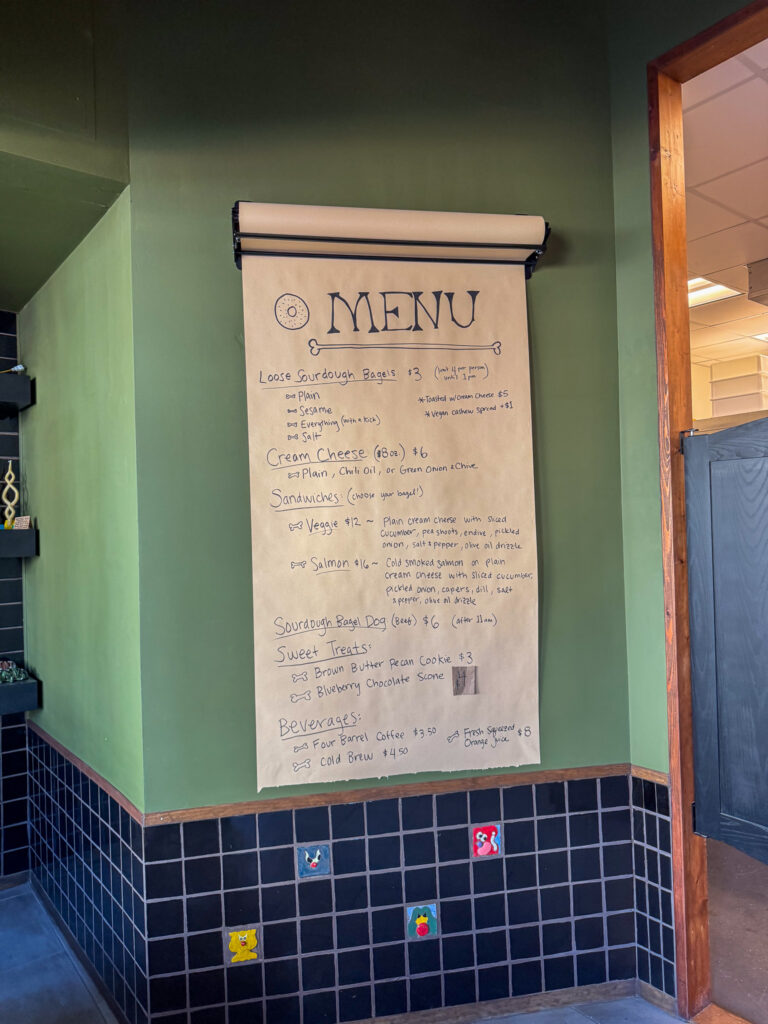 MENU
Loose Sourdough Bagels $3 (limit 4 per person
until 1pm)
Plain
*Toasted w/cream cheese $5
Sesame
*Vegan cashew spread +$1
Everything (with a kick)
Salt
Cream Cheese (8oz.) $6
Plain, Chili Oil, or Green Onion & Chive
Sandwiches: (choose your bagel!)
Veggie $12 ~ Plain cream cheese with sliced
cucumber, pea shoots, endive, pickled
onion, salt & pepper, olive oil drizzle
Salmon $16 ~ Cold smoked salmon on plain
cream cheese with sliced cucumber,
pickled onion, capers, dill, salt
& pepper, olive oil drizzle
Sourdough Bagel Dog (Beef) $6 (after 11am)
Sweet Treats:
Brown Butter Pecan Cookie $3
Blueberry Chocolate Scone $4
Beverages:
Four Barrel Coffee $3.50
Cold Brew $4.50
Fresh Squeezed
Orange Juice $8